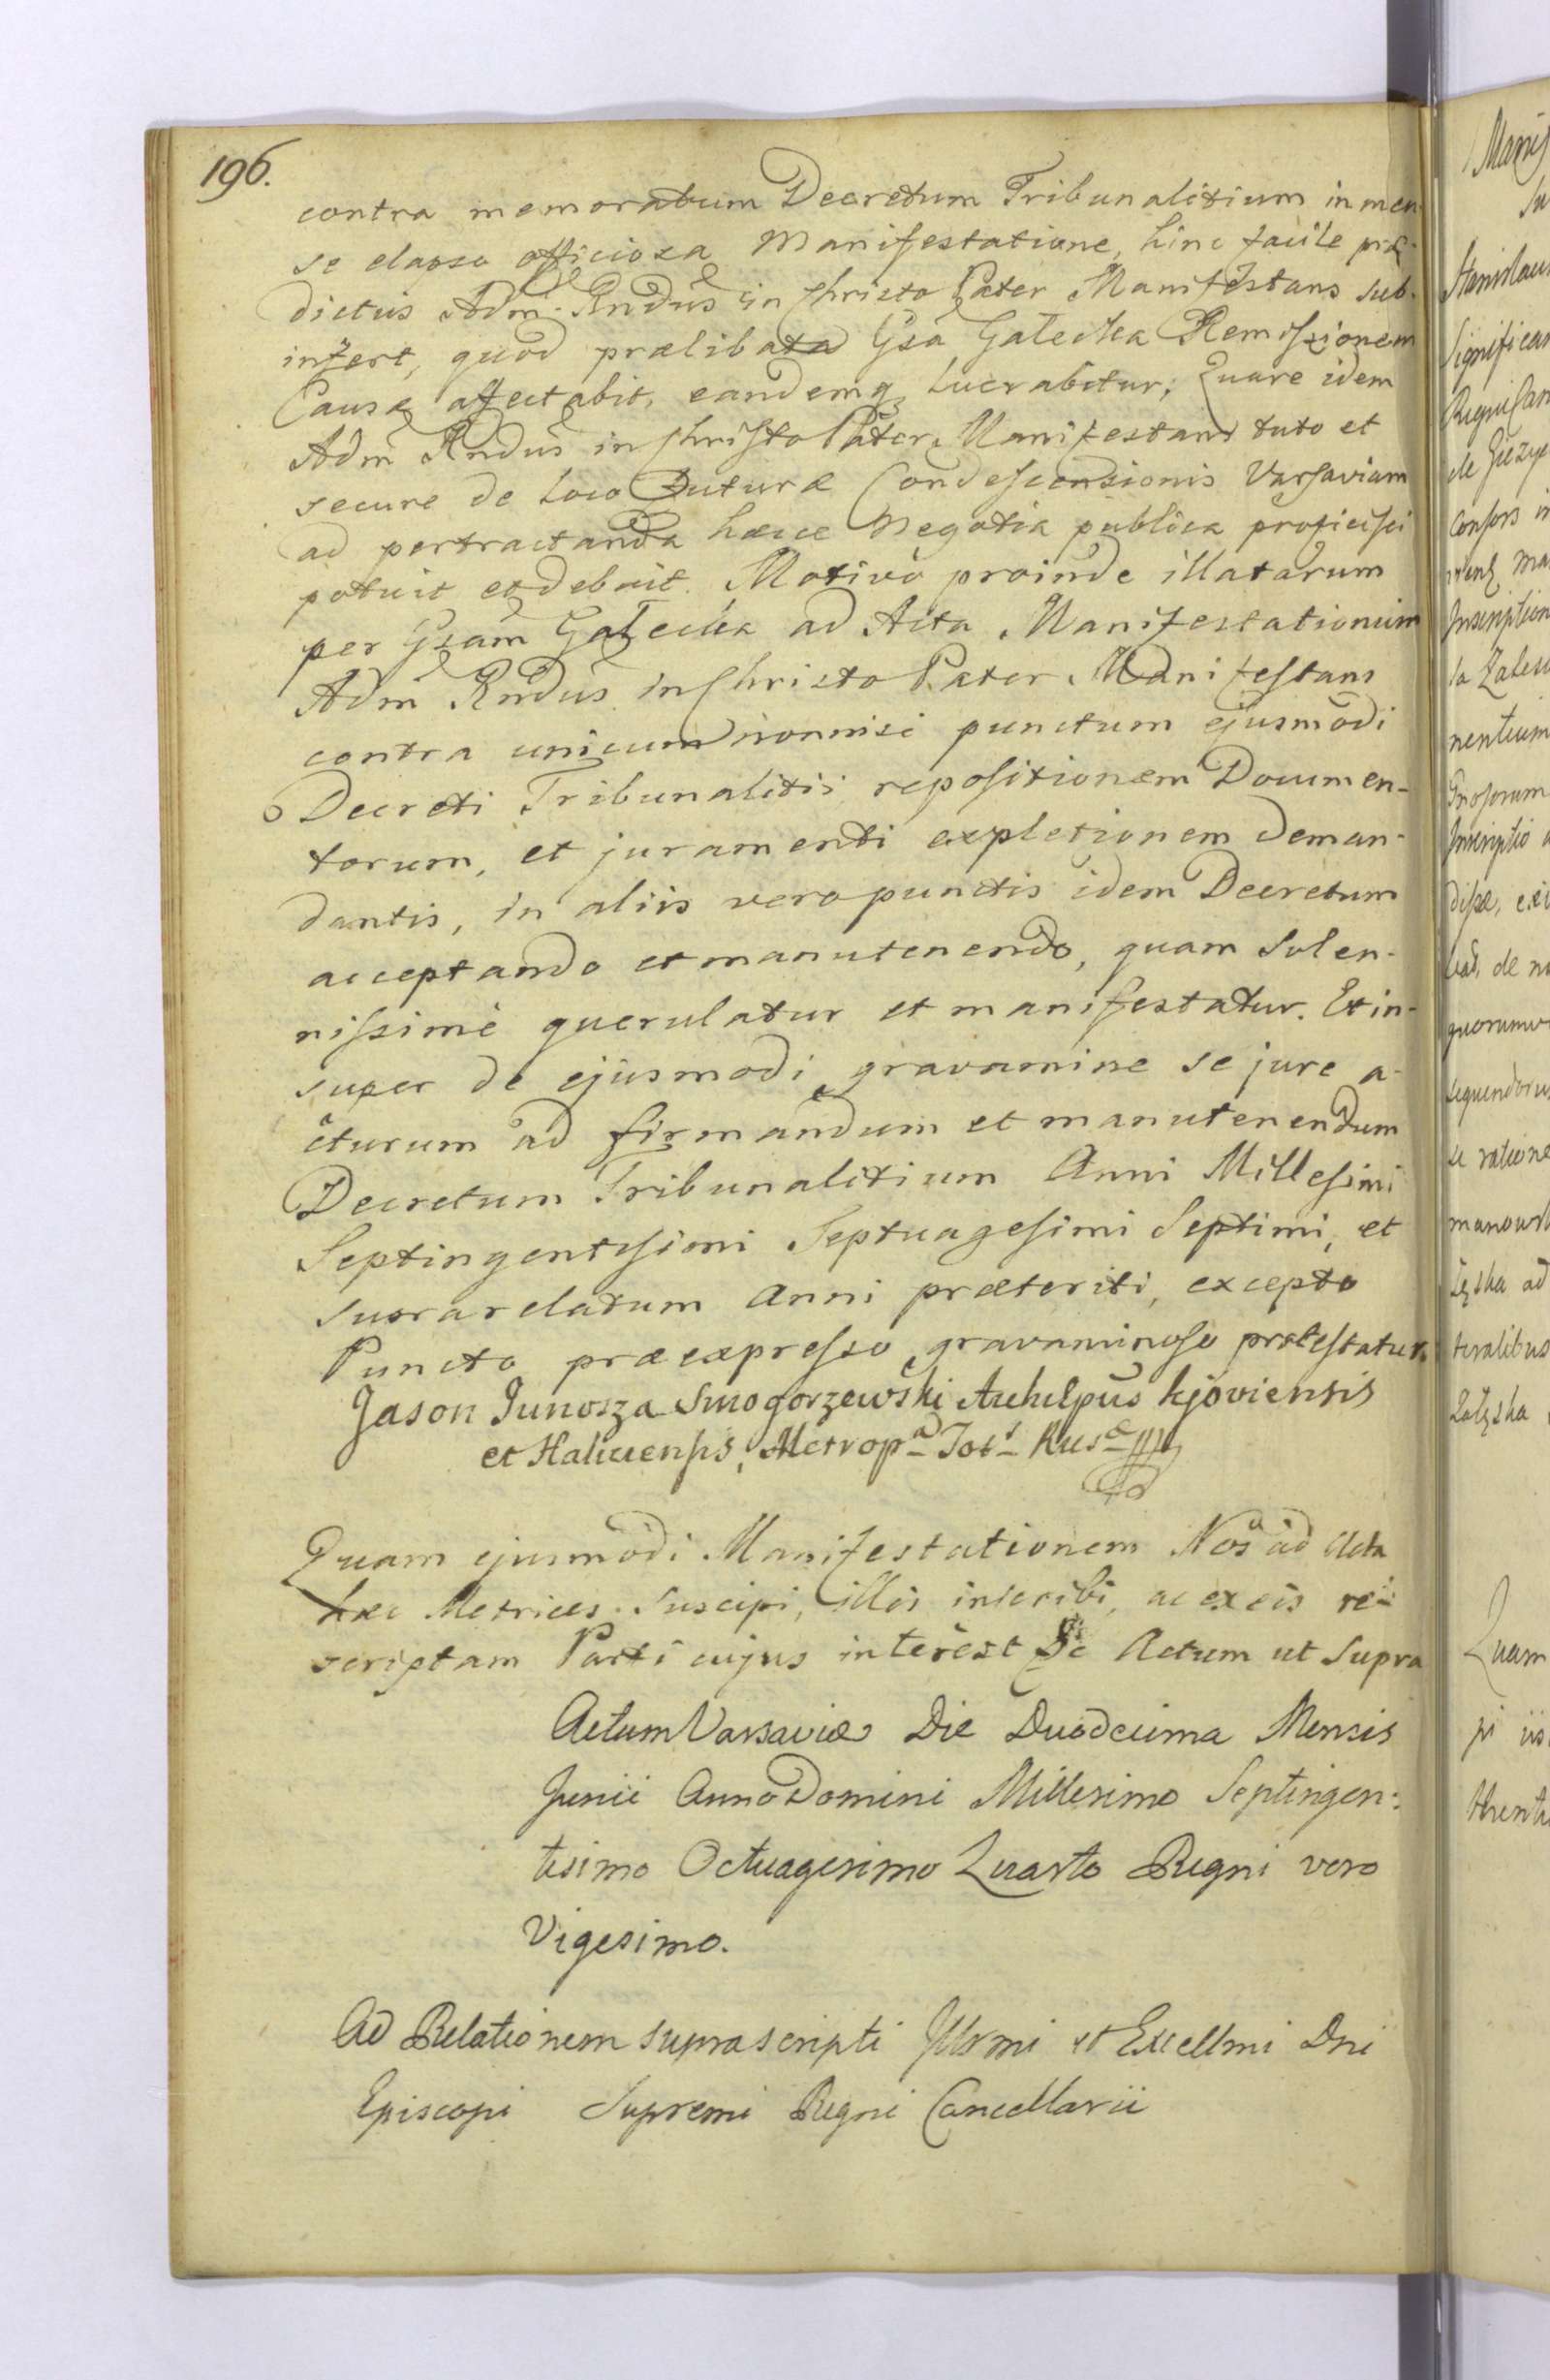 196.
contra memoratum Decretum Tribunalitium in men-
se elapso officiosa Manifestatione, hinc facile præ-
dictus Adm. Rndus in Christo Pater Manifestans sub-
infert, quod prælibata Gsa Gałecka Remissionem
Causæ affectabit, eandemq lucrabitur; Quare idem
Adm Rndus in Christo Pater Manifestans tuto et
secure de Loco Futuræ Condescensionis Varsaviam
ad pertractanda hæcce Negotia publica proficisci
potuit et debuit. Motivò proinde illatarum
per Gsam Gałecka ad Acta Manifestationum
Adm Rndus in Christo Pater Manifestans
contra unicum nonnisi punctum ejusmodi
Decreti Tribunalitii repositionem Documen-
torum, et juramenti expletionem deman-
dantis, in aliis vero punctis idem Decretum
acceptando et manutenendo, quam solen-
nissimè querulatur et manifestatur. Et in-
super de ejusmodi gravamine se jure a-
cturum ad firmandum et manutenendum
Decretum Tribunalitium Anni Millesimi
Septingentesimi Septuagesimi Septimi, et
suprarelatum Anni præteriti, excepto
Puncto præexpresso gravaminoso protestatur.
Jason Junosza Smogorzewski Archieppus Kijoviensis
et Haliciensis, Metropa Tots Rusæ
Quam ejusmodi Manifestationem Nos ad Acta
hæc Metrices suscipi, illis inscribi, ac ex eis re-
scriptam Parti cujus interest &c Actum ut supra
Actum Varsaviæ Die Duodecima Mensis
Junii Anno Domini Millesimo Septingen:
tesimo Octuagesimo Quarto Regni vero
Vigesimo.
Ad Relationem suprascripti Illrmi et Excellmi Dni
Episcopi Supremi Regni Cancellarii